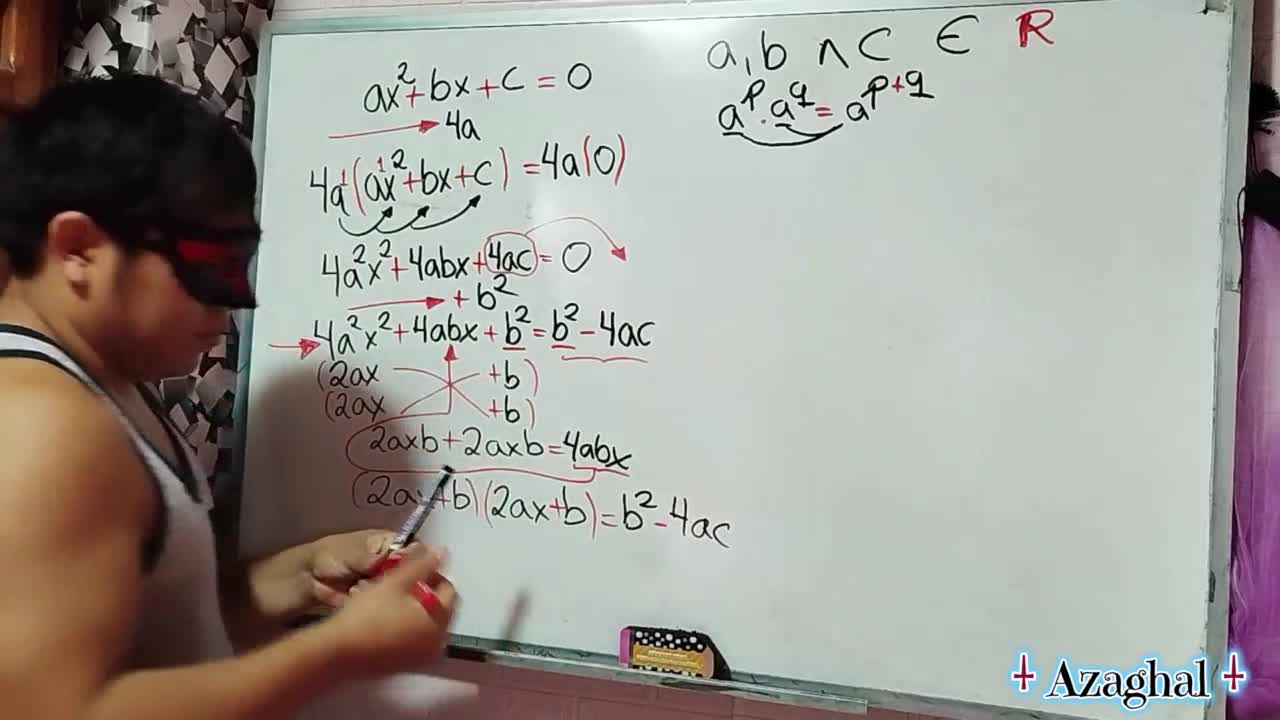 ax²+bx+c=0
4a
4a¹(a¹x²+bx+c)=4a(0)
4a²x²+4abx+4ac=0
+b²
4a²x²+4abx+b²=b²-4ac
(2ax +b)
(2ax +b)
2axb+2axb=4abx
(2ax+b)(2ax+b)=b²-4ac
a,b ∧ C ∈ R
aᵖ·a^q=a^p+q
Azaghal